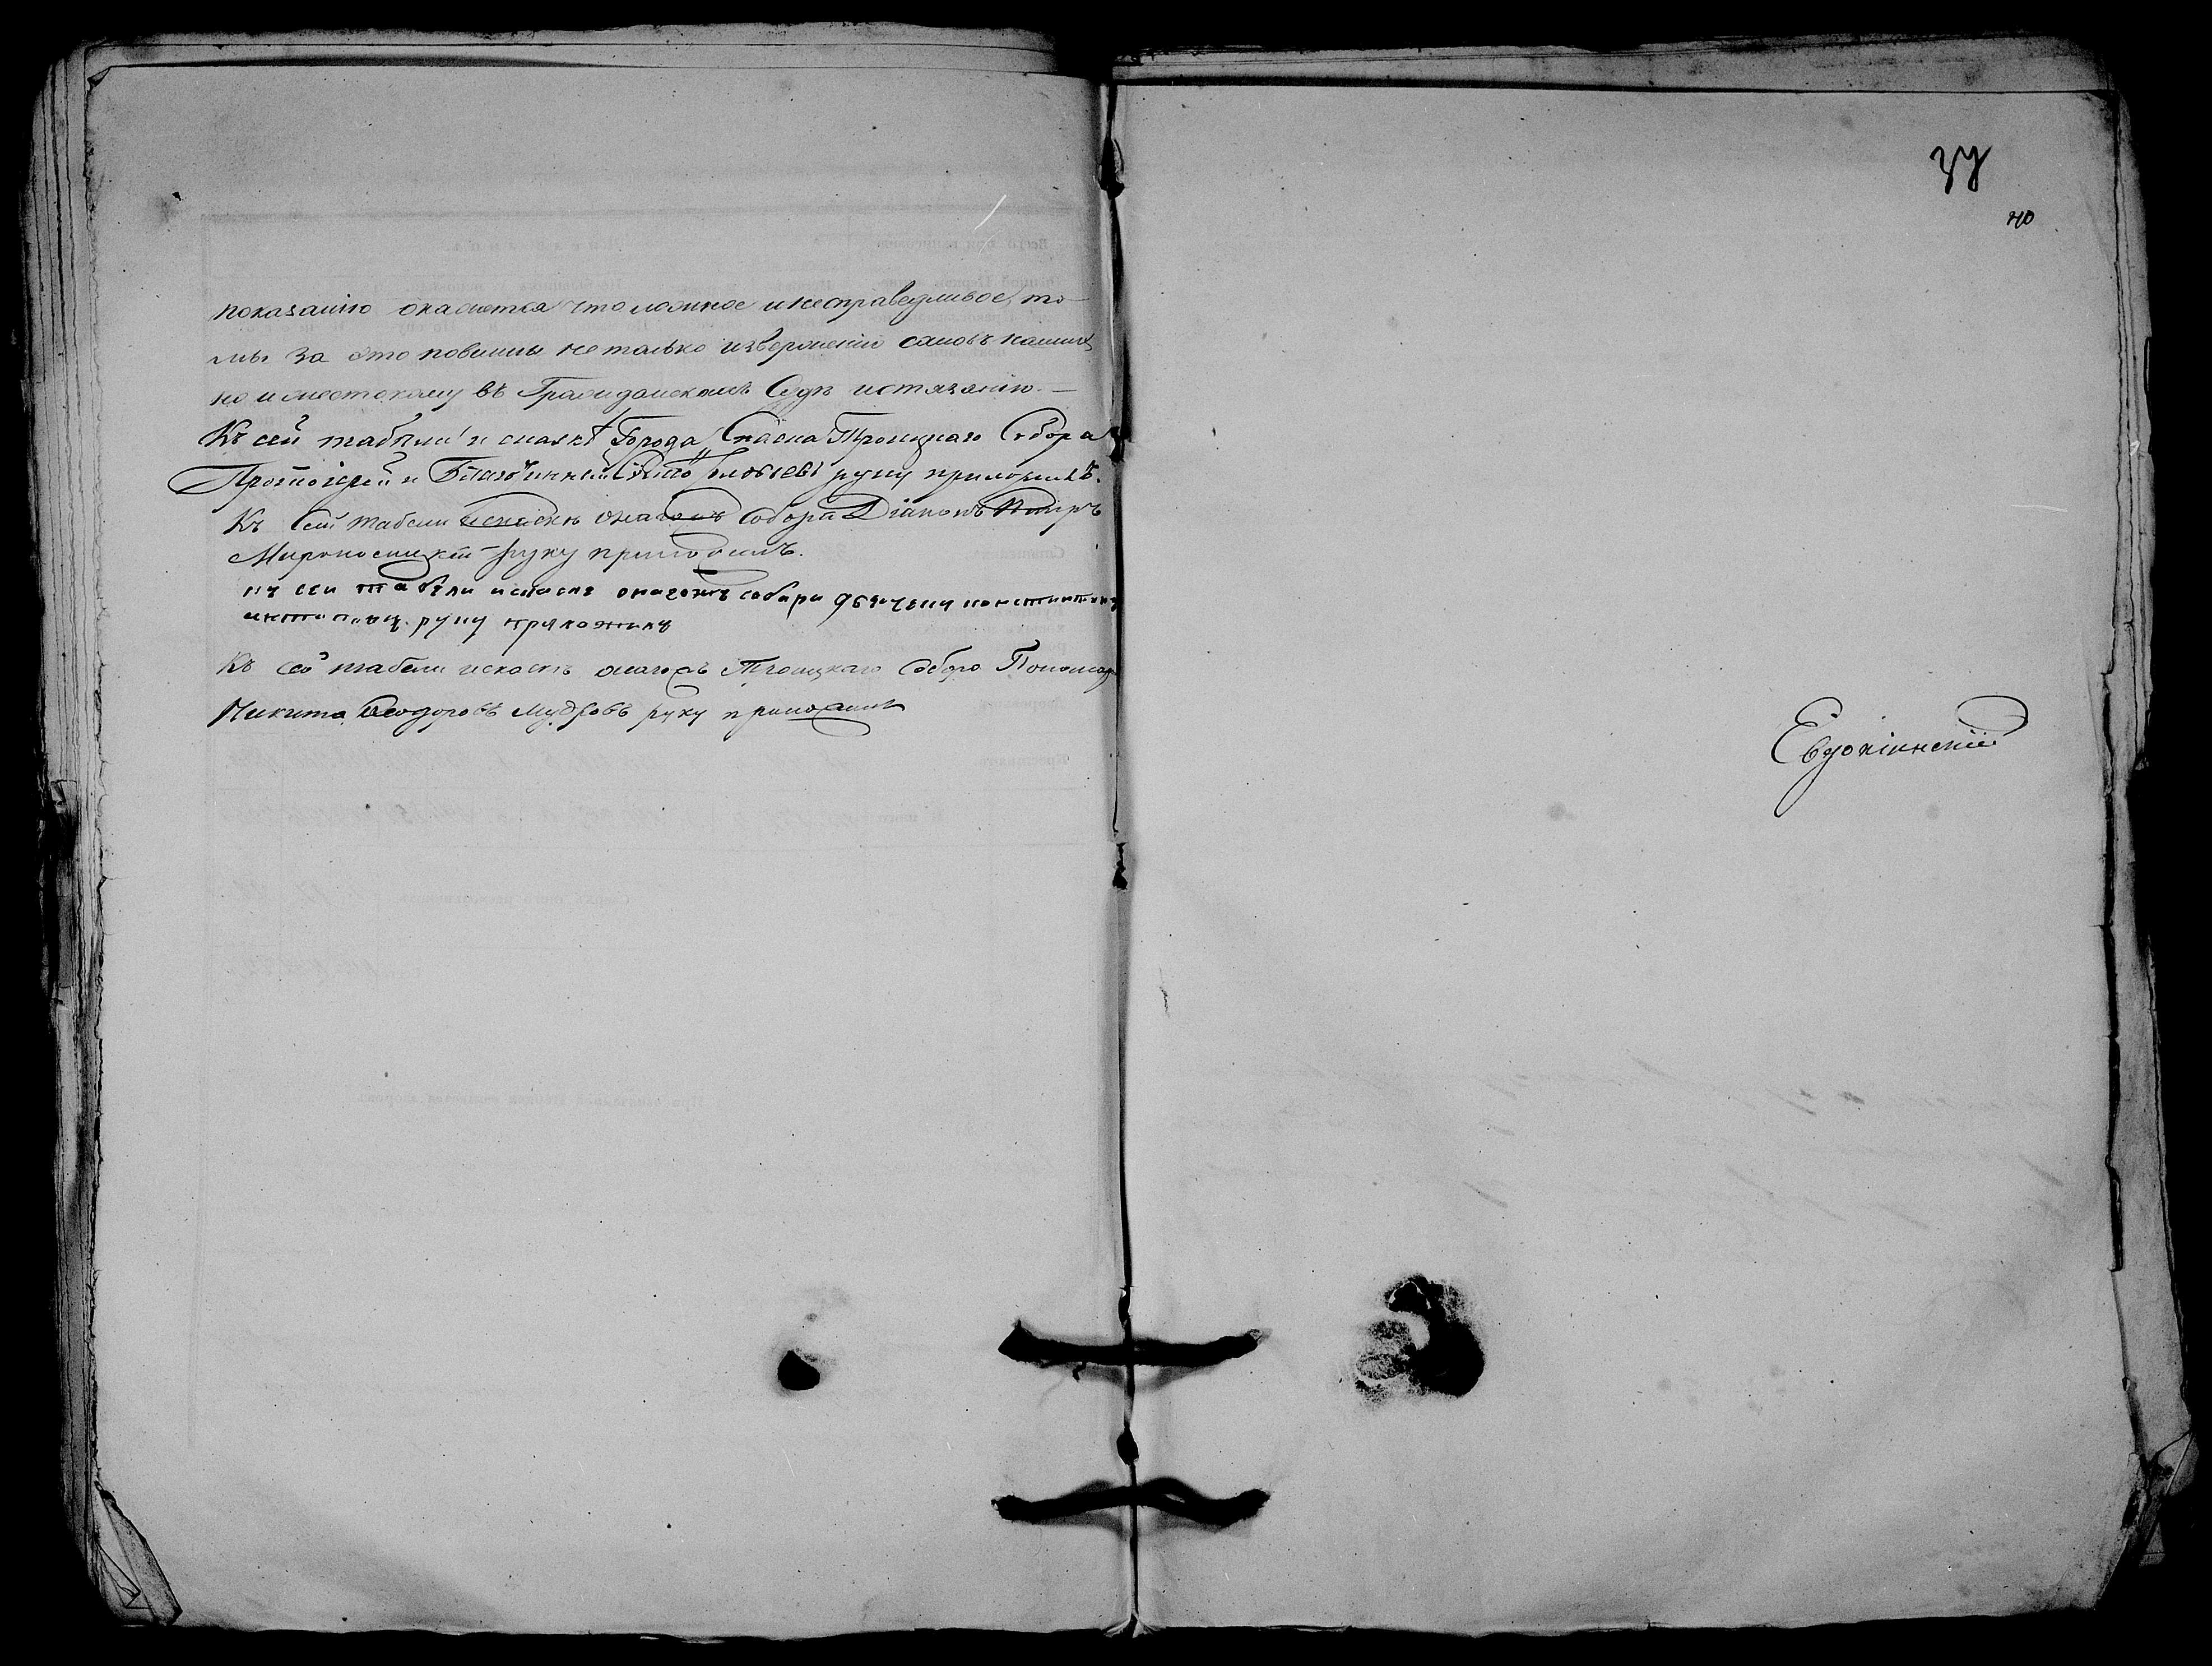 показанію окажется что ложное и несправедливое, то
мы за это повинны не только изверженію сановъ нашихъ,
но и жестокому въ Гражданскомъ Судѣ истязанію. —
Къ сей табели и сказкѣ Города Спаска Троицкаго Собора
Протоіерей и Благочинный руку приложилъ.
Къ Сей табели и скаскѣ онагожъ Собора Діаконъ Петръ
Мироносицкій руку приложилъ.
къ сеи табели искаске онагожъ собора дьячекъ константинъ
руку приложилъ
Къ сей табели искаскѣ онагожъ Троицкаго Собора Пономарь
Никита Ѳеодоровъ Мудровъ руку приложилъ
37
40
Евдокіинскій